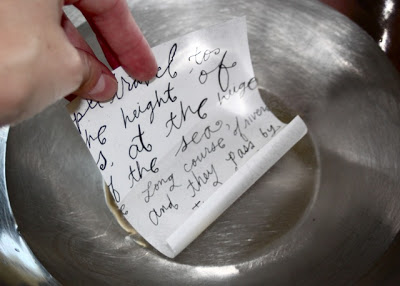 travel to
he height of
s, at the huge
of the sea,
e long course of river
and they pass by